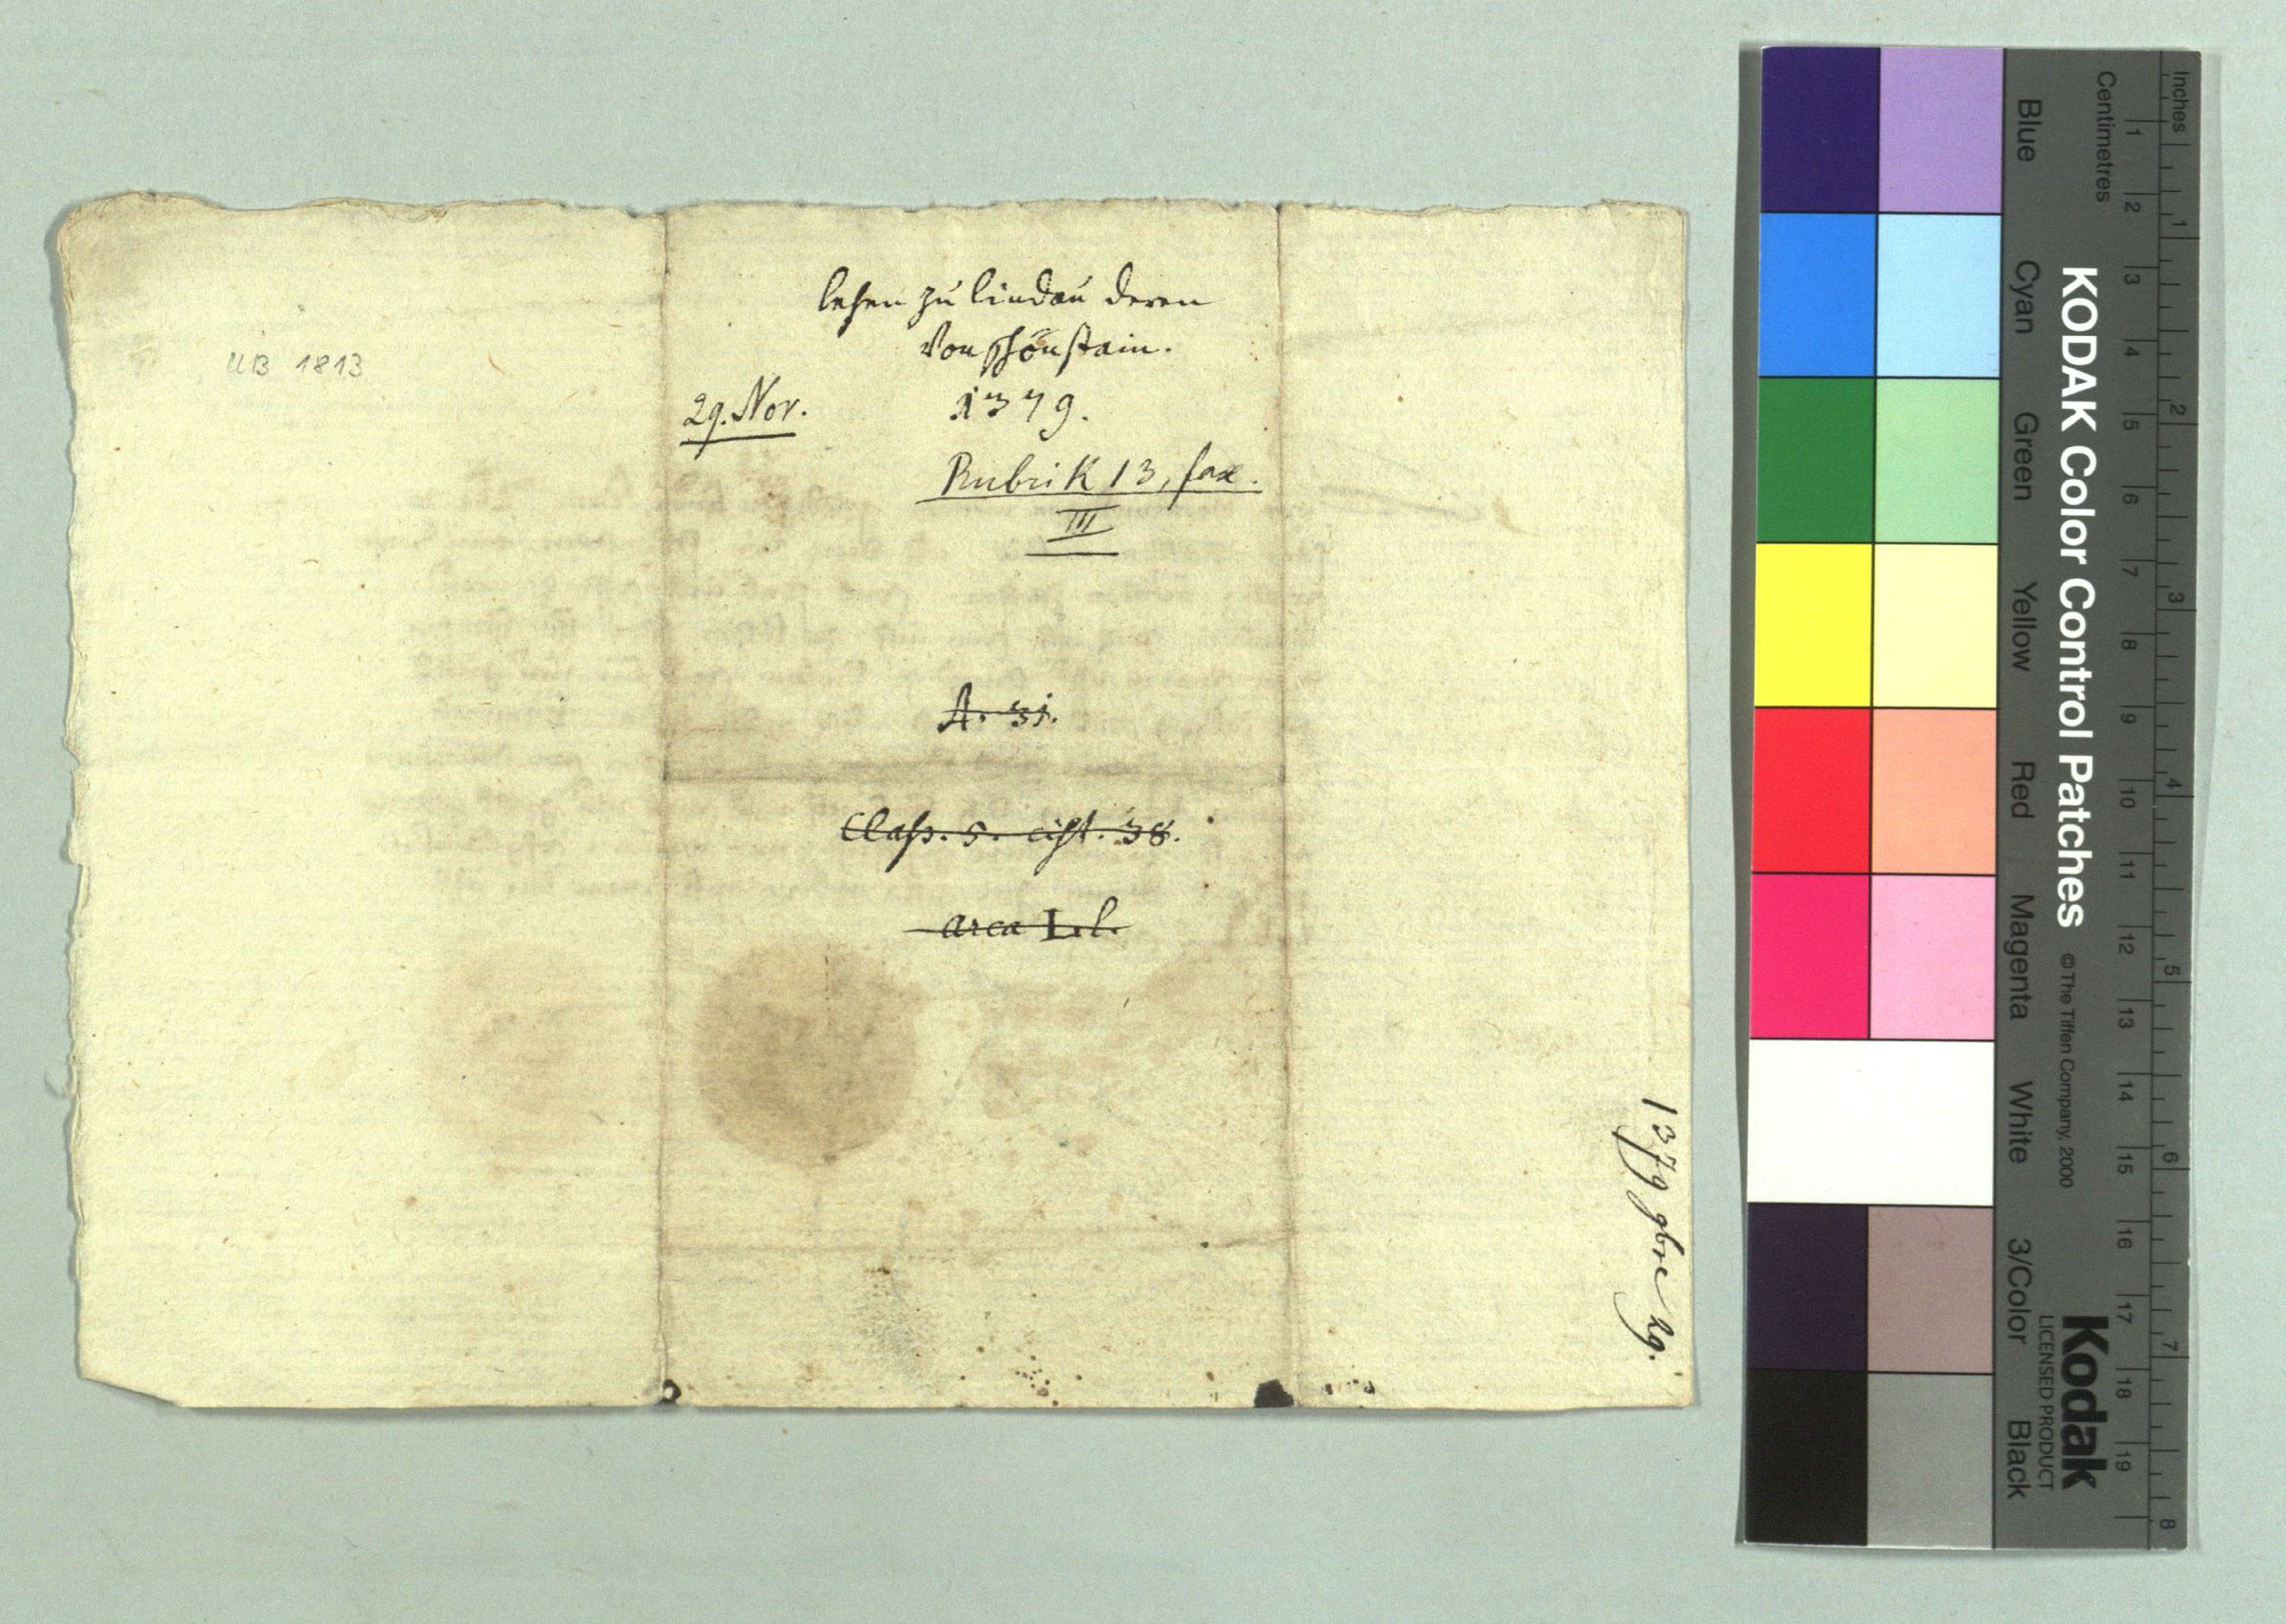 UB 1813
lehen zu lindau deren
Von schönstain.
29. Nov. 1379.
Rubrik 13, fax.
III
A. 31.
Class. 5. cist. 38.
arca I. l.
1379 9bre 29.
Inches
Centimetres
1 2 3 4 5 6 7 8 9 10 11 12 13 14 15 16 17 18 19
1 2 3 4 5 6 7 8
KODAK Color Control Patches © The Tiffen Company, 2000 Kodak
LICENSED PRODUCT
Blue Cyan Green Yellow Red Magenta White 3/Color Black